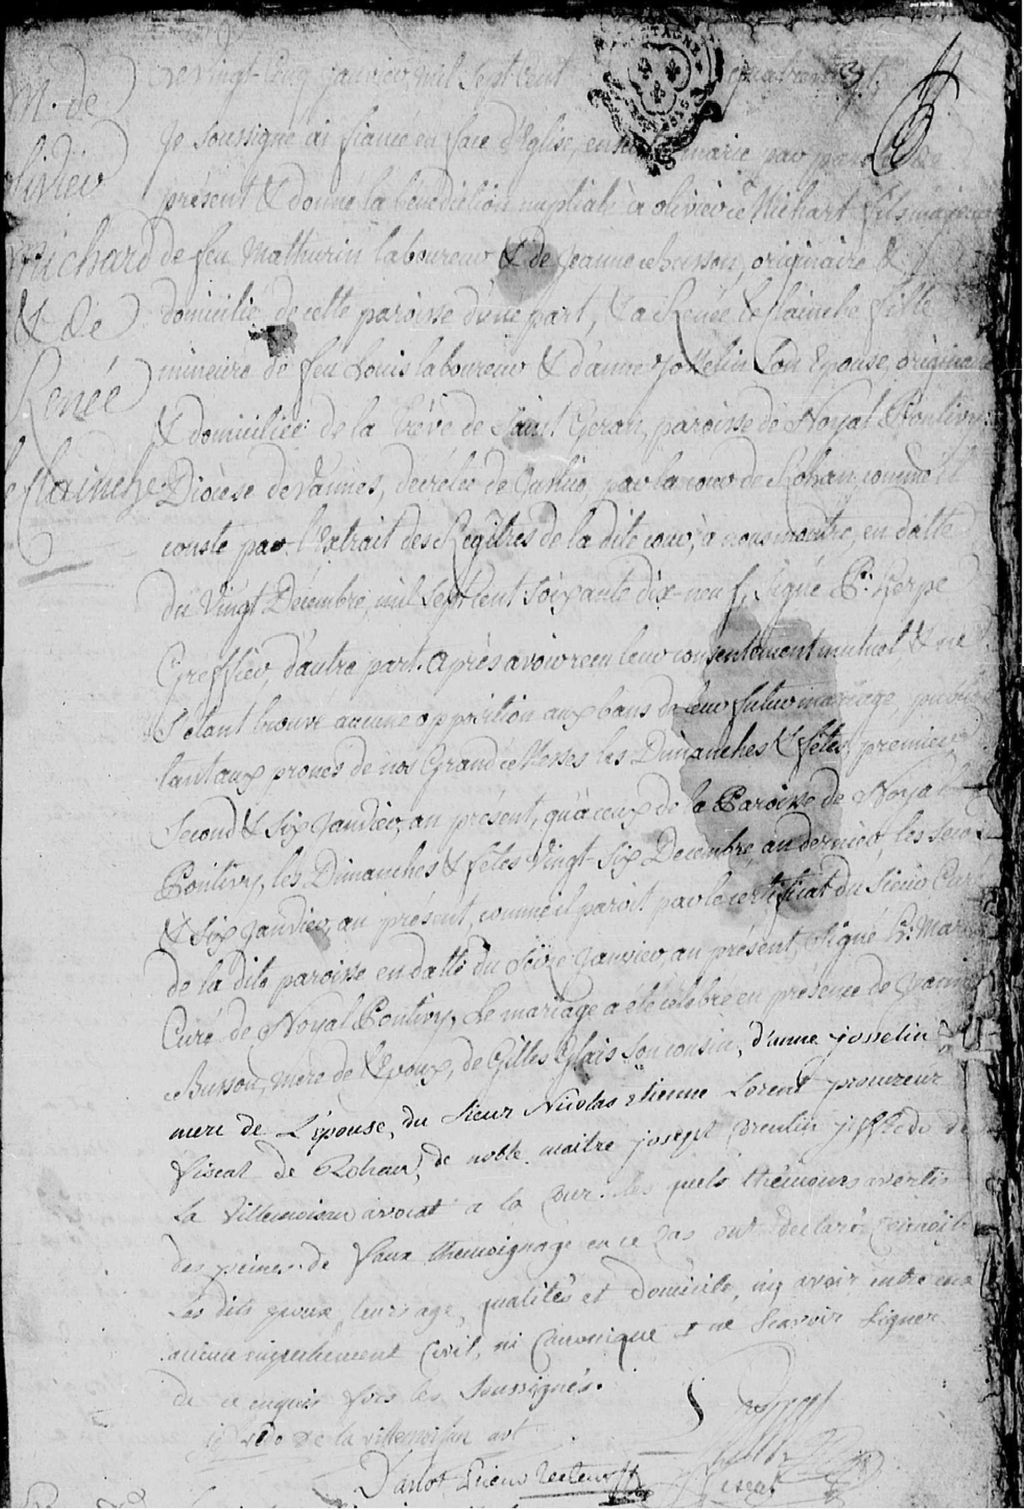 M. de
Olivier
Michard
& de
Renée
le flainche
Le vingt-cinq janvier mil sept cent quatrevingt,
Je soussigné ai fiancé en face d'Eglise, ensuite marié par parole de
présent & donné la bénédiction nuptiale à olivier Michart fils majeur
de feu Mathurin laboureur & de Jeanne Busson, originaire &
domicilié de cette paroisse d'une part, & a Renée le flainche fille
mineure de feu Louis laboureur & d'anne Josselin son Epouse, originaire
& domiciliée de la trève de Saint Geran, paroisse de Noyal Pontivy
Diocèse de Vannes, décrétée de justice par la cour de Rohan, comme il
conste par l'Extrait des Registres de la dite cour, a nous montré, en datte
du Vingt Décembre, mil sept cent soixante dix-neuf, Signé Kerpe
Greffier, d'autre part. Après avoir recu leur consentement mutuel & ne
S'étant trouvé aucune opposition aux bans de leur futur mariage, publiés
tant aux prones de nos Grande Messes les Dimanches & fêtes premier
Second & Six Janvier, an présent, qu'à ceux de la Paroisse de Noyal
Pontivy, les Dimanches & fêtes Vingt-Six Decembre, an dernier, les Second
& Six Janvier, an présent, comme il paroit par le certificat du Sieur Curé
de la dite paroisse en datte du Seize Janvier, an présent, Signé
Curé de Noyal Pontivy, Le mariage a été célébré en présence de Jeanne
Busson, mère de l'Epoux, de Gilles Glais son cousin, d'anne josselin
mere de L'épouse, du Sieur Nicolas etienne Lorent procureur
fiscal de Rohan, de noble maitre joseph jeffredo de
la Villemoisan avocat a la Cour. les quels thémoins avertis
des peines de faux themoignage en ce cas ont declaré connoitre
les dits epoux, leurs age, qualités et domicile, n'y avoir entre eux
aucun empechement Civil, ni Canonique & ne Scavoir Signer
de ce enquis fors les Soussignés.
de la villemoisan avt
Danot Prieur Recteur
fiscal